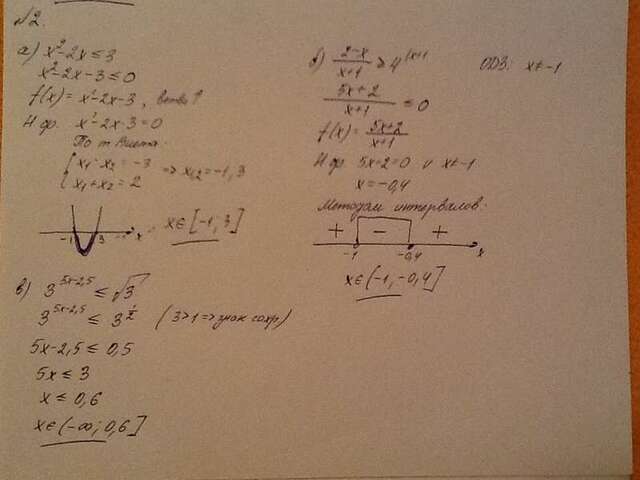 №2.
а) x²-2x ≤ 3
x²-2x-3 ≤ 0
f(x) = x²-2x-3, ветви ↑
Н.ф. x²-2x-3=0
По т. Виета.
{ x₁·x₂ = -3
x₁+x₂ = 2 => x₁,₂ = -1, 3
-1 3 x
x∈[-1; 3]
б) (2-x)/(x+1) ≥ 4 |x+1
ОДЗ: x≠-1
(5x+2)/(x+1) ≤ 0
f(x) = (5x+2)/(x+1)
Н.ф. 5x+2=0 и x≠-1
x=-0,4
Методом интервалов.
+ - +
-1 -0,4 x
x∈(-1; -0,4]
в) 3^(5x-2,5) ≤ √3
3^(5x-2,5) ≤ 3^(1/2) (3>1 => знак сохр)
5x-2,5 ≤ 0,5
5x ≤ 3
x ≤ 0,6
x∈(-∞; 0,6]